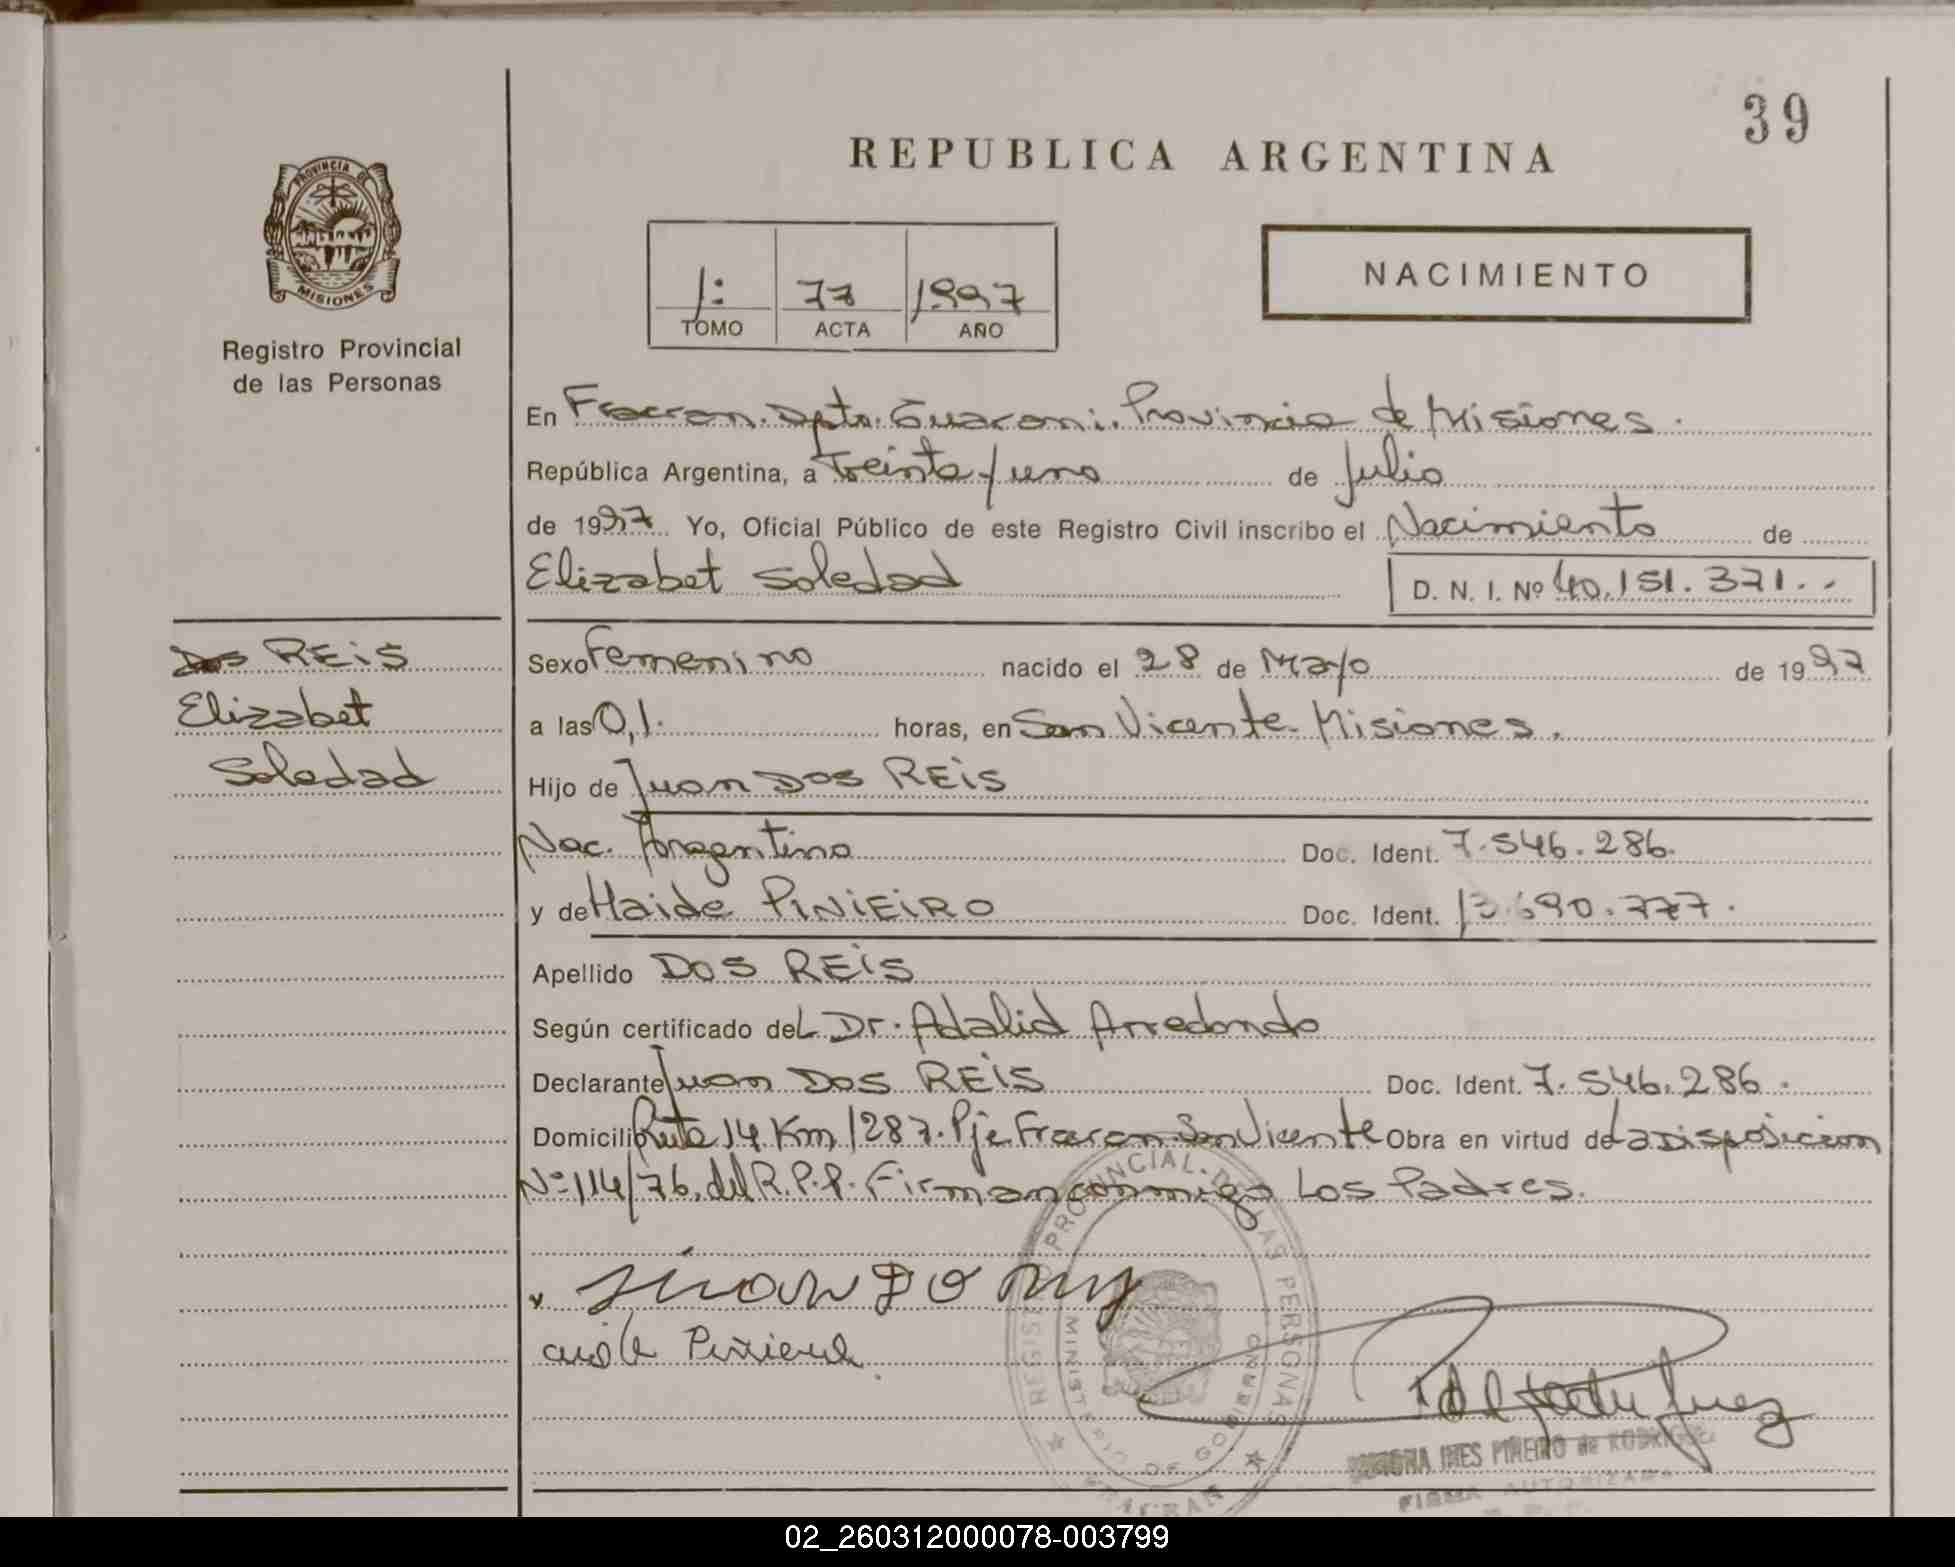 39
REPUBLICA ARGENTINA
PROVINCIA DE
MISIONES
Registro Provincial
de las Personas
1: 77 1997
TOMO ACTA AÑO
NACIMIENTO
En Fracran. Dpto. Guarani. Provincia de Misiones.
República Argentina, a treinta y uno de Julio
de 1997 Yo, Oficial Público de este Registro Civil inscribo el Nacimiento de
Elizabet Soledad D. N. I. Nº 40.151.371..
Dos REIS
Elizabet
Soledad
Sexo Femenino nacido el 28 de Mayo de 1997
a las 0,1. horas, en San Vicente. Misiones.
Hijo de Juan Dos REIS
Nac. Argentino Doc. Ident. 7.546.286.
y de Haide PINIEIRO Doc. Ident. 13.690.777.
Apellido DOS REIS
Según certificado del Dr. Adalid Arredondo
Declarante Juan Dos REIS Doc. Ident. 7.546.286.
Domicilio Ruta 14 Km 1287. Pje Fracran. San Vicente Obra en virtud de la Disposicion
Nº 114/76. del R.P.P. Firman conmigo Los Padres.
REGISTRO PROVINCIAL DE LAS PERSONAS
MINISTERIO DE GOBIERNO
FRACRAN
INES PIÑEIRO de RODRIGUEZ
FIRMA AUTORIZADA
02_260312000078-003799